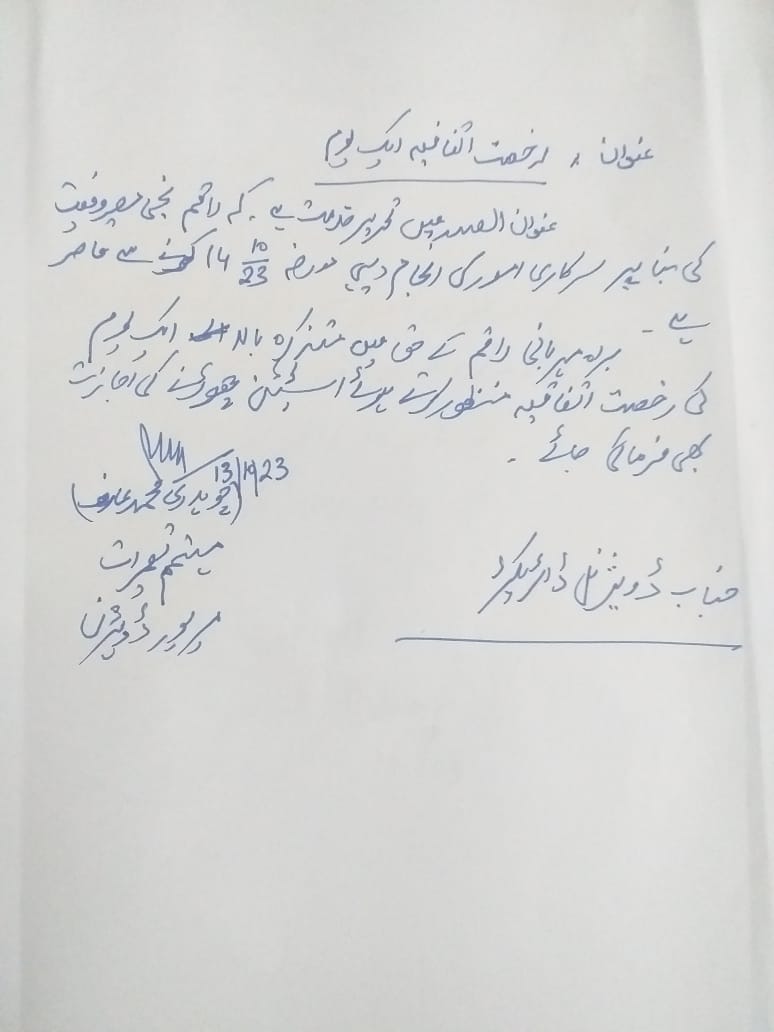 عنوان : رخصت اتفاقیہ ایک یوم
عنوان الصدر میں تحریر خدمت ہے ۔ کہ راقم نجی مصروفیت
کی بنا پر سرکاری امور کی انجام دہی مورخہ 14 10/23 کرنے سے قاصر
ہے ۔
براہ مہربانی راقم کے حق میں متذکرہ بالا ایک یوم
کی رخصت اتفاقیہ منظور کرتے ہوئے اسٹیشن چھوڑنے کی اجازت
بھی فرمائی جائے ۔
13/10/23
(چوہدری محمد عارف)
مہتمم تعمیرات
میرپور ڈویژن
جناب ڈویژنل ڈائریکٹر